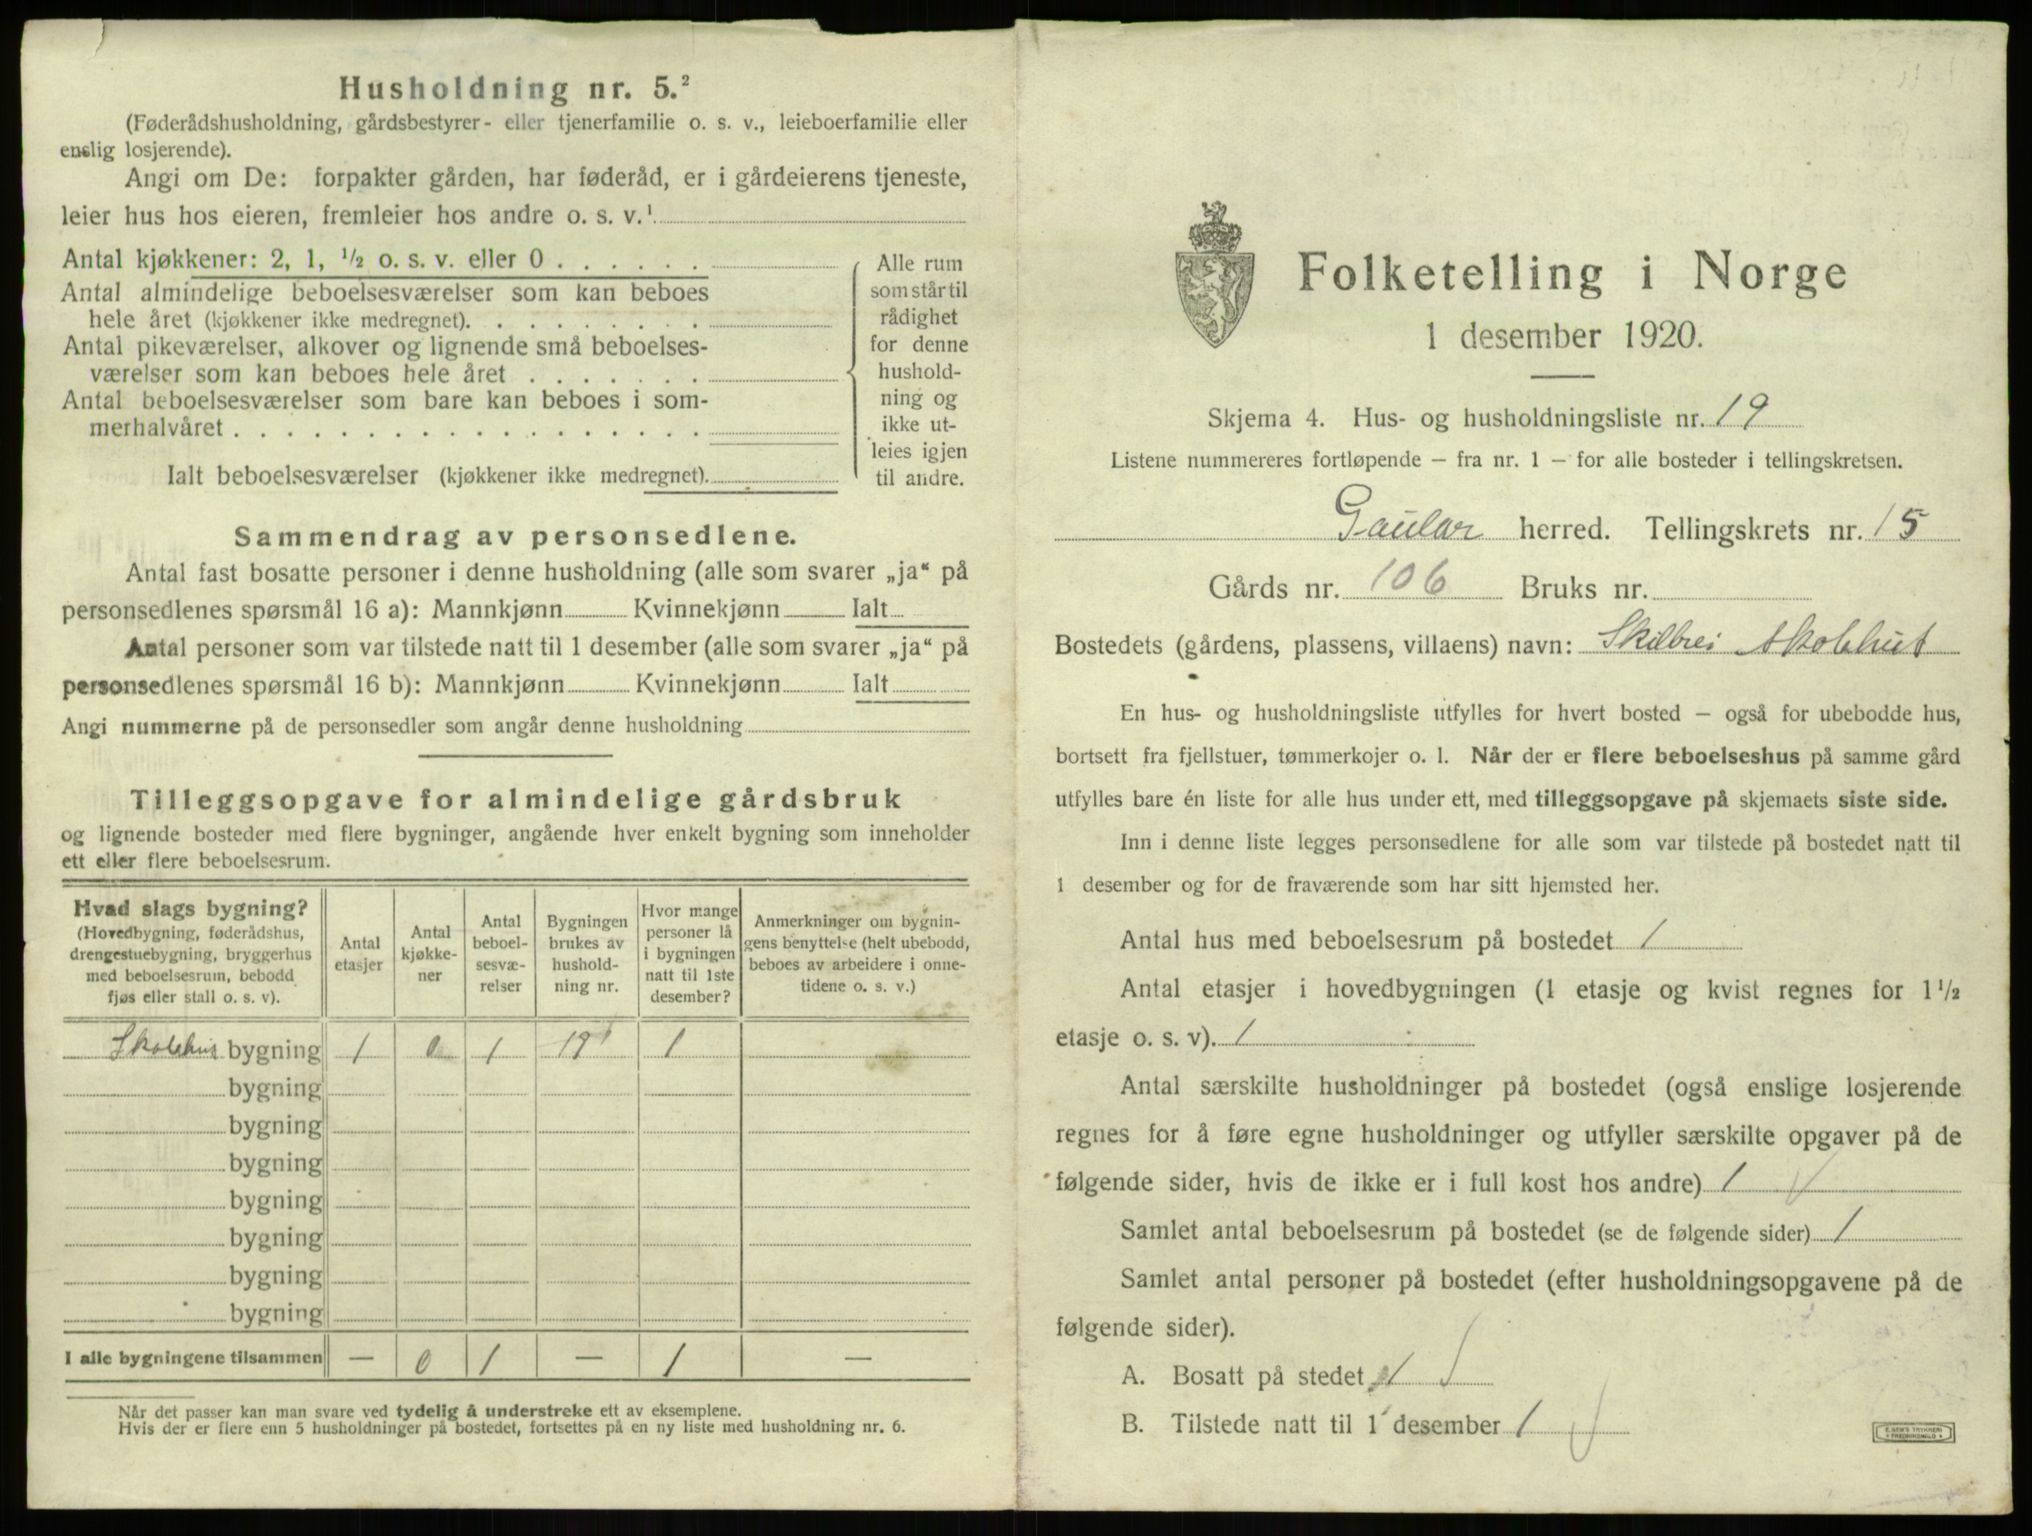 Husholdning nr. 5.²
(Føderådshusholdning, gårdsbestyrer- eller tjenerfamilie o. s. v., leieboerfamilie eller
enslig losjerende).
Angi om De: forpakter gården, har føderåd, er i gårdeierens tjeneste,
leier hus hos eieren, fremleier hos andre o. s. v.¹
Antal kjøkkener: 2, 1, ½ o. s. v. eller 0
Antal almindelige beboelsesværelser som kan beboes
hele året (kjøkkener ikke medregnet).
Antal pikeværelser, alkover og lignende små beboelses-
værelser som kan beboes hele året
Antal beboelsesværelser som bare kan beboes i som-
merhalvåret
Ialt beboelsesværelser (kjøkkener ikke medregnet).
Alle rum
som står til
rådighet
for denne
hushold-
ning og
ikke ut-
leies igjen
til andre.
Sammendrag av personsedlene.
Antal fast bosatte personer i denne husholdning (alle som svarer „ja“ på
personsedlenes spørsmål 16 a): Mannkjønn Kvinnekjønn Ialt
Antal personer som var tilstede natt til 1 desember (alle som svarer „ja“ på
personsedlenes spørsmål 16 b): Mannkjønn Kvinnekjønn Ialt
Angi nummerne på de personsedler som angår denne husholdning
Tilleggsopgave for almindelige gårdsbruk
og lignende bosteder med flere bygninger, angående hver enkelt bygning som inneholder
ett eller flere beboelsesrum.
Hvad slags bygning?
(Hovedbygning, føderådshus,
drengestuebygning, bryggerhus
med beboelsesrum, bebodd
fjøs eller stall o. s. v).
Antal
etasjer
Antal
kjøkke-
ner
Antal
beboel-
sesvæ-
relser
Bygningen
brukes av
hushold-
ning nr.
Hvor mange
personer lå
i bygningen
natt til 1ste
desember?
Anmerkninger om bygnin-
gens benyttelse (helt ubebodd,
beboes av arbeidere i onne-
tidene o. s. v.)
Skolehus bygning 1 0 1 19 1
bygning
bygning
bygning
bygning
bygning
bygning
bygning
I alle bygningene tilsammen — 0 1 — 1 —
Når det passer kan man svare ved tydelig å understreke ett av eksemplene.
Hvis der er flere enn 5 husholdninger på bostedet, fortsettes på en ny liste med husholdning nr. 6.
Folketelling i Norge
1 desember 1920.
Skjema 4. Hus- og husholdningsliste nr. 19
Listene nummereres fortløpende – fra nr. 1 – for alle bosteder i tellingskretsen.
Gaular herred. Tellingskrets nr. 15
Gårds nr. 106 Bruks nr.
Bostedets (gårdens, plassens, villaens) navn: Skilbrei skolehus
En hus- og husholdningsliste utfylles for hvert bosted – også for ubebodde hus,
bortsett fra fjellstuer, tømmerkojer o. l. Når der er flere beboelseshus på samme gård
utfylles bare én liste for alle hus under ett, med tilleggsopgave på skjemaets siste side.
Inn i denne liste legges personsedlene for alle som var tilstede på bostedet natt til
1 desember og for de fraværende som har sitt hjemsted her.
Antal hus med beboelsesrum på bostedet 1
Antal etasjer i hovedbygningen (1 etasje og kvist regnes for 1½
etasje o. s. v). 1
Antal særskilte husholdninger på bostedet (også enslige losjerende
regnes for å føre egne husholdninger og utfyller særskilte opgaver på de
følgende sider, hvis de ikke er i full kost hos andre) 1
Samlet antal beboelsesrum på bostedet (se de følgende sider) 1
Samlet antal personer på bostedet (efter husholdningsopgavene på de
følgende sider).
A. Bosatt på stedet 1
B. Tilstede natt til 1 desember 1